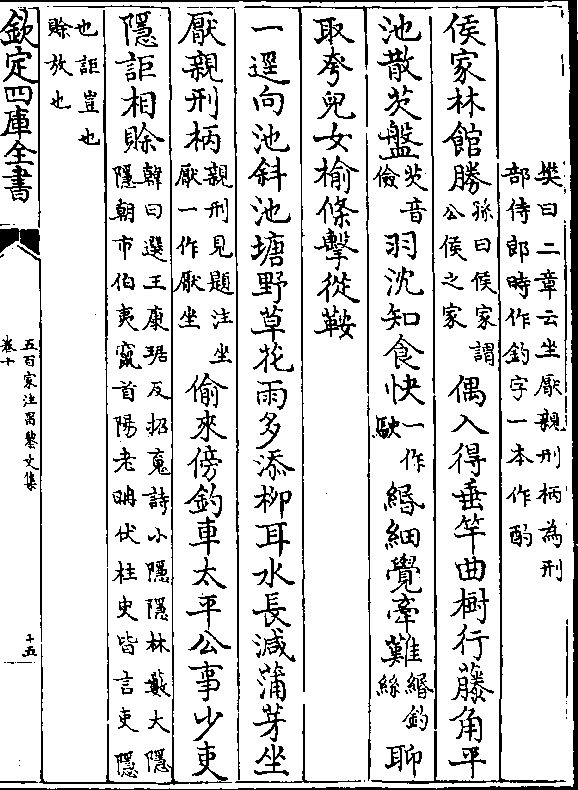 樊曰二章云坐厭親刑柄為刑
部侍郎時作釣字一本作酌
侯家林館勝孫曰侯家謂公侯之家偶入得垂竿曲樹行藤角平
池散芡盤芡音儉羽沈知食快一作駛緡細覺牽難緡釣絲聊
取夸兒女榆條擊從鞍
一逕向池斜池塘野草花雨多添柳耳水長減蒲芽坐
厭親刑柄親刑見題注坐厭一作厭坐偷來傍釣車太平公事少吏
隱詎相賒韓曰選王康琚反招𮕵詩小隱隱林藪大隱隱朝市伯夷竄首陽老聃伏柱史皆言吏隱
也詎豈也賒放也
欽定四庫全書
五百家注昌黎文集
卷十
十五